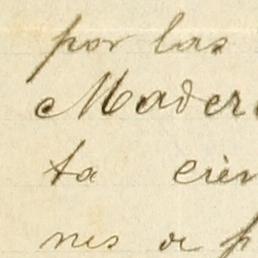 por las
Mader
ta cien
nes de p